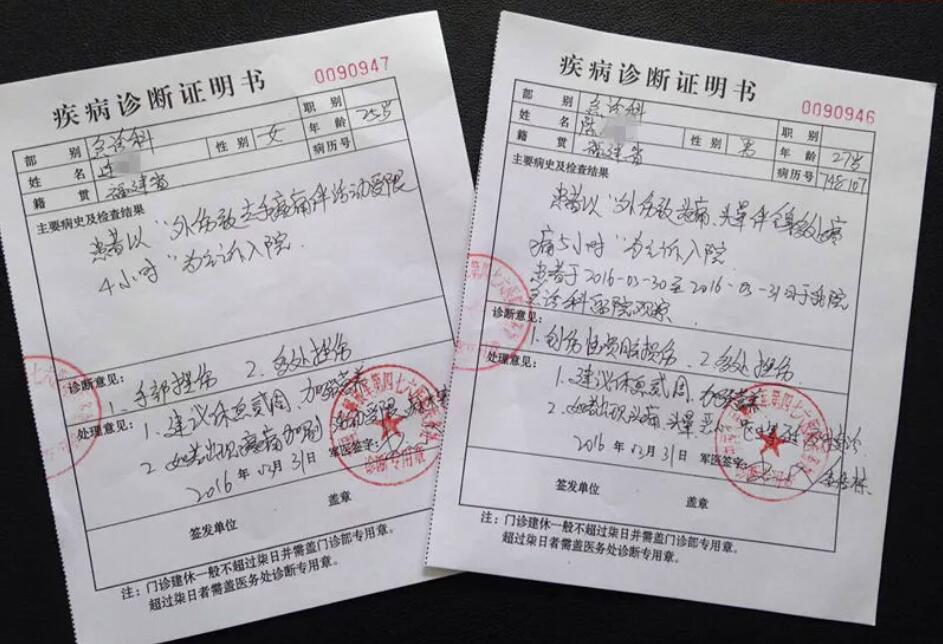 疾病诊断证明书
0090947
部别 急诊科 职别
姓名 性别 女 年龄 25岁
籍贯 福建省 病历号
主要病史及检查结果
患者以"外伤致左手疼痛伴活动受限
4小时"为主诉入院.
诊断意见:
1. 手部挫伤 2. 多处挫伤
处理意见:
1. 建议休息贰周、加强营养
2. 如若出现疼痛加剧 活动受限
2016年03月31日 军医签字:
签发单位 盖章
注:门诊建休一般不超过柒日并需盖门诊部专用章。
超过柒日者需盖医务处诊断专用章。
疾病诊断证明书
0090946
部别 急诊科 职别
姓名 性别 男 年龄 27岁
籍贯 福建省 病历号 748107
主要病史及检查结果
患者以"外伤致头痛、头晕伴全身多处疼
痛5小时"为主诉入院
患者于2016-03-30至2016-03-31日于我院
急诊科留院观察.
诊断意见:
1. 创伤性 脑损伤 2. 多处挫伤
处理意见:
1. 建议休息贰周、加强营养
2. 如若出现头痛、头晕、恶心
2016年03月31日 军医签字:
签发单位 盖章
注:门诊建休一般不超过柒日并需盖门诊部专用章。
超过柒日者需盖医务处诊断专用章。
第四七六医院
诊断专用章